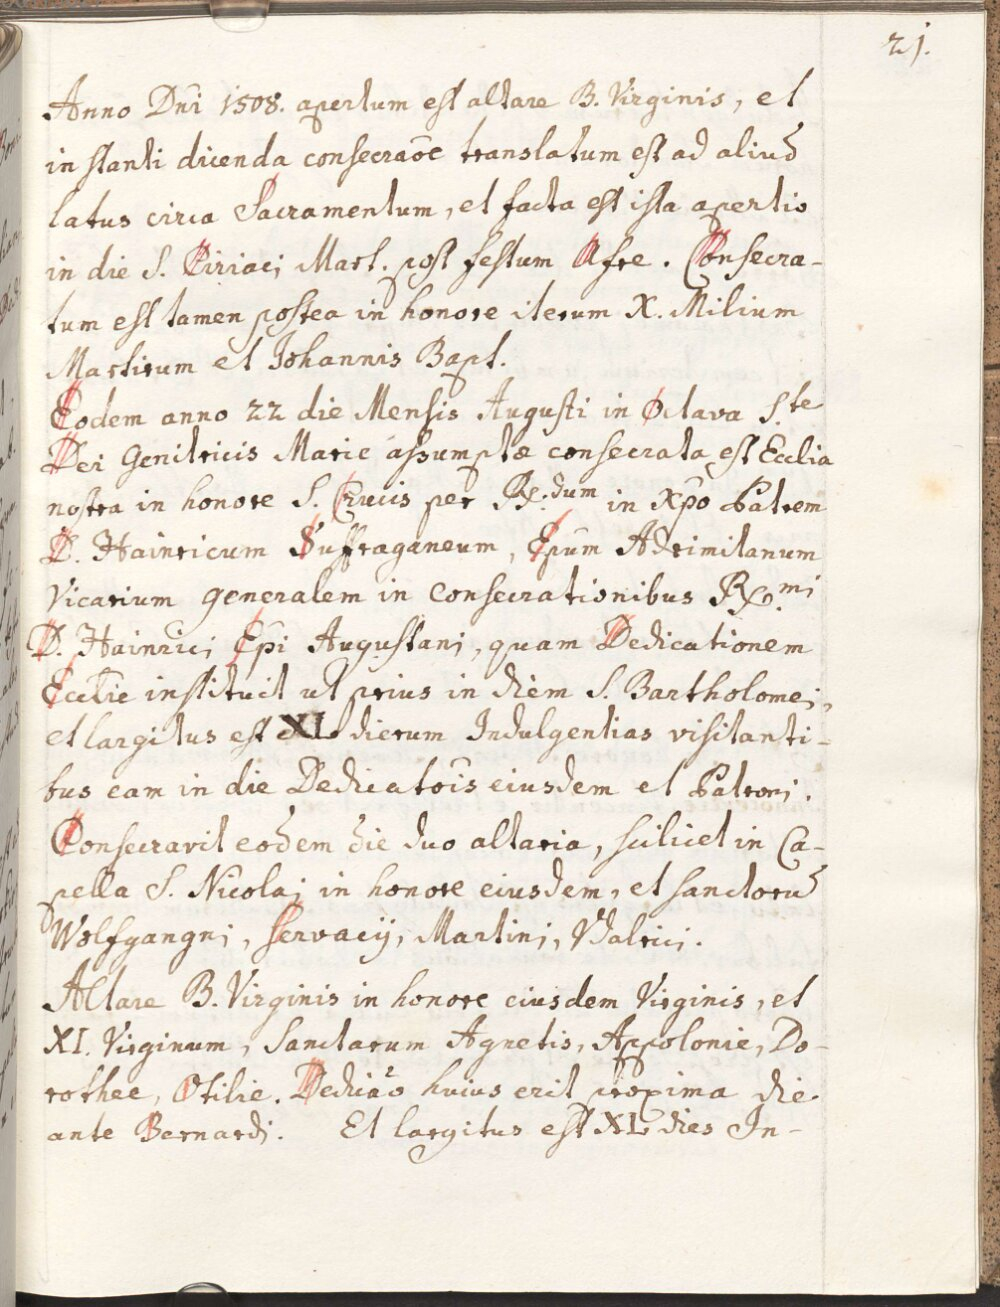 21.
Anno Dn̄i 1508. apertum est altare B. Virginis, et
instanti dicenda consecraōe translatum est ad aliud̄
latus circa Sacramentum, et facta est ista apertio
in die S. Ciriacj Mart. post festum Afre. Consecra-
tum est tamen postea in honore iterum X. Milium
Martirum et Johannis Bapt.
Eodem anno 22 die Mensis Augusti in Octava S.te
Dei Genitricis Marie assumptæ consecrata est Ecclia
nostra in honore S. Crucis per R.dum in Xp̄o Patrem
D. Hainricum Suffraganeum, Ep̄um Adrimitanum
Vicarium generalem in consecrationibus R.mi
D. Hainricj Ep̄i Augustanj, quam Dedicationem
Eccl̄ie instituit ut prius in diem S. Bartholomej,
et largitus est XL dierum Indulgentias visitanti-
bus eam in die Dedicatoīs eiusdem et Patronj.
Consecravit eod̄em die duo altaria, scilicet in Ca-
pella S. Nicolaj in honore eiusdem, et sanctorū
Wolfgangnj, Servacij, Martinj, Vdalricj.
Altare B. Virginis in honore eiusdem Virginis, et
XI. Virginum, Sanctarum Agnetis, Appolonie, Do-
rothee, Otilie. Dedicaō huius erit proxima die
ante Bernardj. Et largitus est XL dies In-